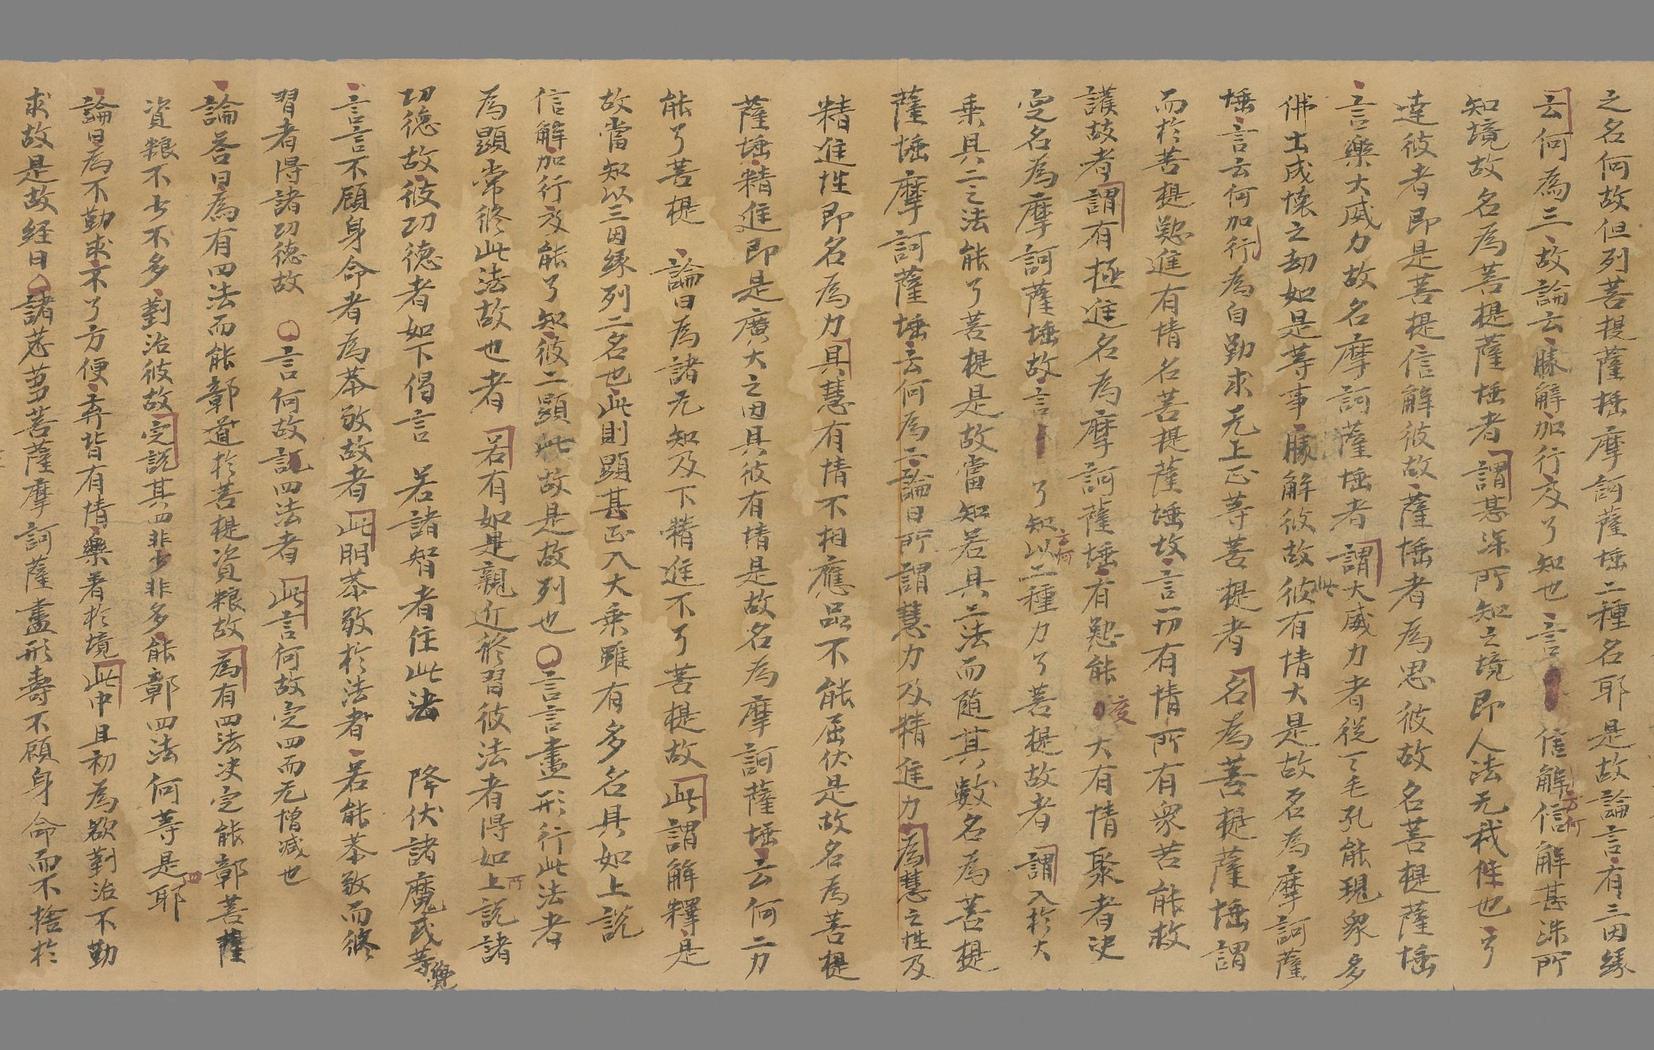 之名何故但列菩提薩埵摩訶薩埵二種名耶是故論言有三因緣
云何為三故論云勝解加行及了知也言信解信解甚深所
知境故名為菩提薩埵者謂甚深所知之境即人法无我性也了
達彼者即是菩提信解彼故薩埵者為思彼故名菩提薩埵
言樂大威力故名摩訶薩埵者謂大威力者從一毛孔能現眾多
佛土成懷之劫如是等事勝解彼故彼有情大是故名為摩訶薩
埵言云何加行為自勤求无上正等菩提者名為菩提薩埵謂
而於菩提懃進有情名菩提薩埵故言一切有情所有眾苦能救
護故者謂有極進名為摩訶薩埵有懃能度大有情聚者決
定名為摩訶薩埵故言了知以二種力了菩提故者謂入於大
乘具二之法能了菩提是故當知若具二法而隨其數名為菩提
薩埵摩訶薩埵云何為二論曰所謂慧力及精進力為慧之性及
精進性即名為力具慧有情不相應品不能屈伏是故名為菩提
薩埵精進即是廣大之因具彼有情是故名為摩訶薩埵云何二力
能了菩提論曰為諸无知及下精進不了菩提故此謂解釋是
故當知以三因緣列二名也此則顯甚正入大乘雖有多名具如上說
信解加行及能了知彼二顯此故是故列也言言盡形行此法者
為顯常修此法故也者若有如是親近修習彼法者得如上所說諸
功德故彼功德者如下偈言若諸智者住此法降伏諸魔民等覺
言言不顧身命者為恭敬故者此門恭敬於法者若能恭敬而修
習者得諸功德故言何故說四法者此言何故定四而无增減也
論答曰為有四法而能鄣道於菩提資粮故為有四法決定能鄣菩薩
資粮不少不多對治彼故定說其四非少非多能鄣四法何等是耶
論曰為不勤求不了方便弃皆有情樂著於境此中且初為欲對治不勤
求故是故經曰諸苾芻菩薩摩訶薩盡形壽不顧身命而不捨於